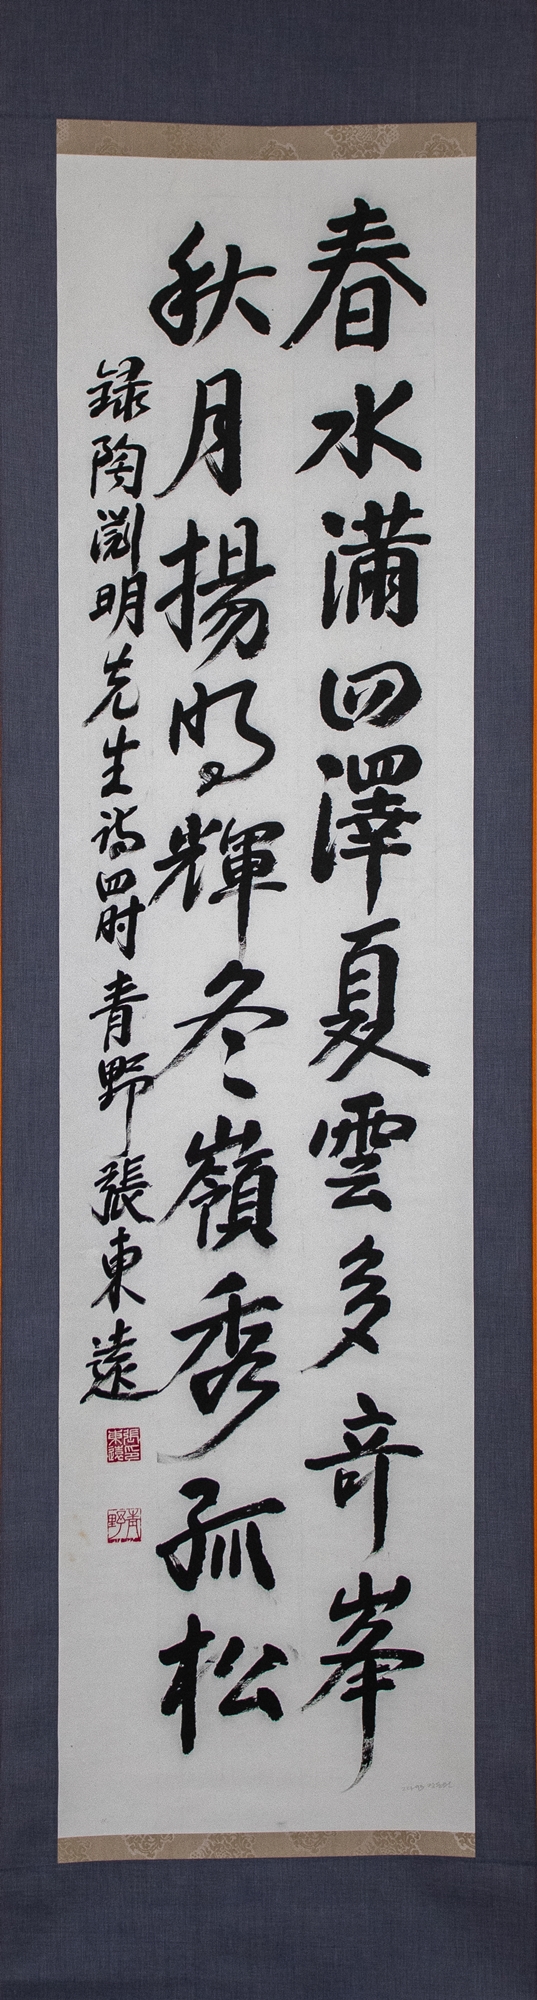 春水滿四澤夏雲多奇峯
秋月揚明輝冬嶺秀孤松
録陶淵明先生詩四时青野張東遠
張印東遠
青野